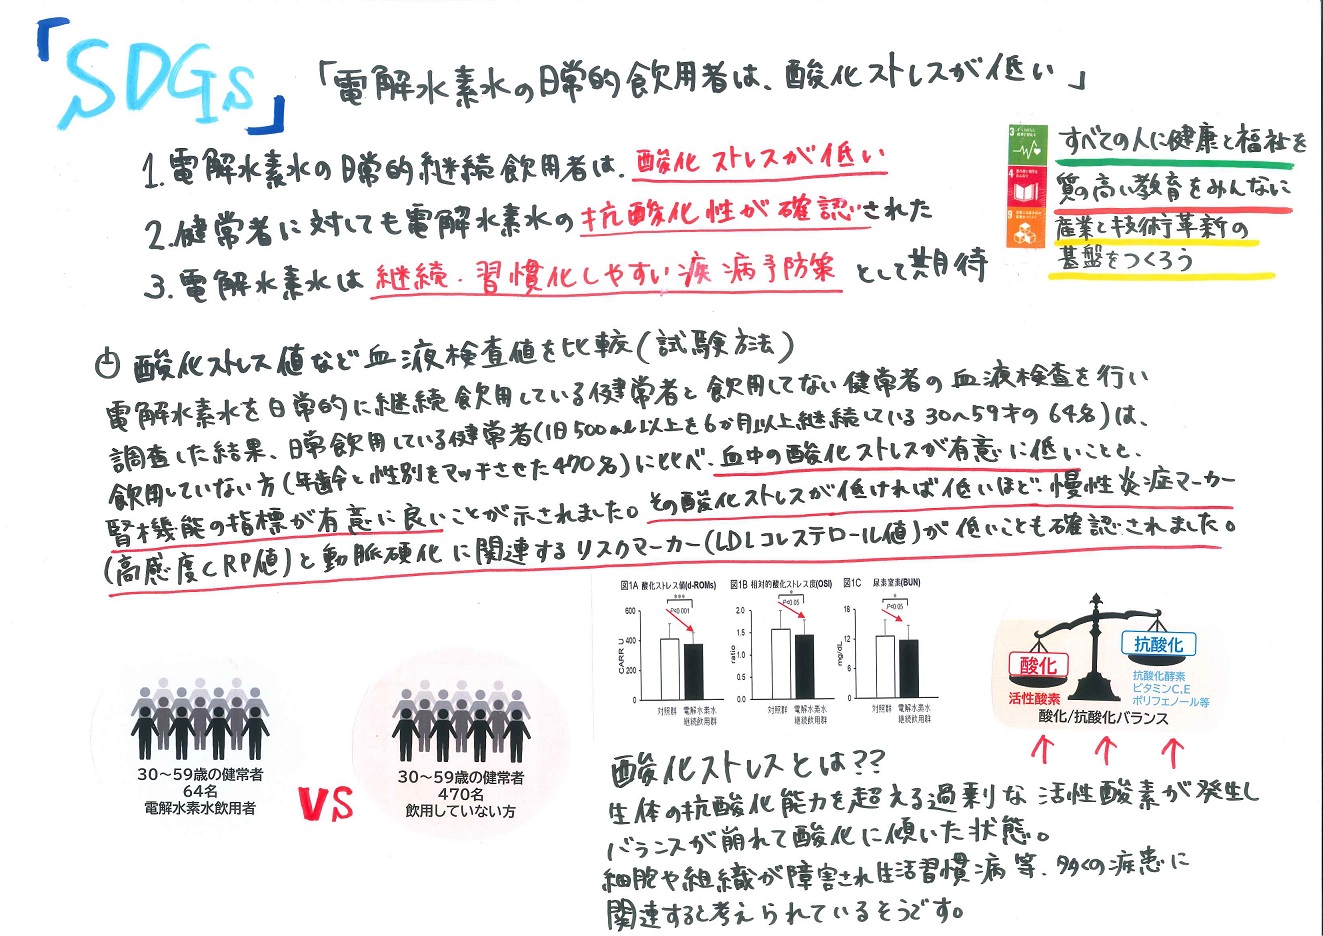 「SDGs」
「電解水素水の日常的飲用者は、酸化ストレスが低い」
1.電解水素水の日常的継続飲用者は、酸化ストレスが低い
2.健常者に対しても電解水素水の抗酸化性が確認された
3.電解水素水は継続・習慣化しやすい疾病予防策として期待
3 すべての人に健康と福祉を
4 質の高い教育をみんなに
9 産業と技術革新の
基盤をつくろう
酸化ストレス値など血液検査値を比較(試験方法)
電解水素水を日常的に継続飲用している健常者と飲用してない健常者の血液検査を行い
調査した結果、日常飲用している健常者(1日500ml以上を6か月以上継続している30〜59才の64名)は、
飲用していない方(年齢と性別をマッチさせた470名)に比べ、血中の酸化ストレスが有意に低いことと、
腎機能の指標が有意に良いことが示されました。その酸化ストレスが低ければ低いほど、慢性炎症マーカー
(高感度CRP値)と動脈硬化に関連するリスクマーカー(LDLコレステロール値)が低いことも確認されました。
図1A 酸化ストレス値(d-ROMs)
***
P<0.001
CARR U
600
400
200
0
対照群
電解水素水
継続飲用群
図1B 相対的酸化ストレス度(OSI)
*
P<0.05
ratio
2.0
1.5
1.0
0.5
0.0
対照群
電解水素水
継続飲用群
図1C 尿素窒素(BUN)
*
P<0.05
mg/dL
18
12
6
0
対照群
電解水素水
継続飲用群
酸化
活性酸素
抗酸化
抗酸化酵素
ビタミンC,E
ポリフェノール等
酸化/抗酸化バランス
30〜59歳の健常者
64名
電解水素水飲用者
VS
30〜59歳の健常者
470名
飲用していない方
酸化ストレスとは??
生体の抗酸化能力を超える過剰な活性酸素が発生し
バランスが崩れて酸化に傾いた状態。
細胞や組織が障害され生活習慣病等、多くの疾患に
関連すると考えられているそうです。